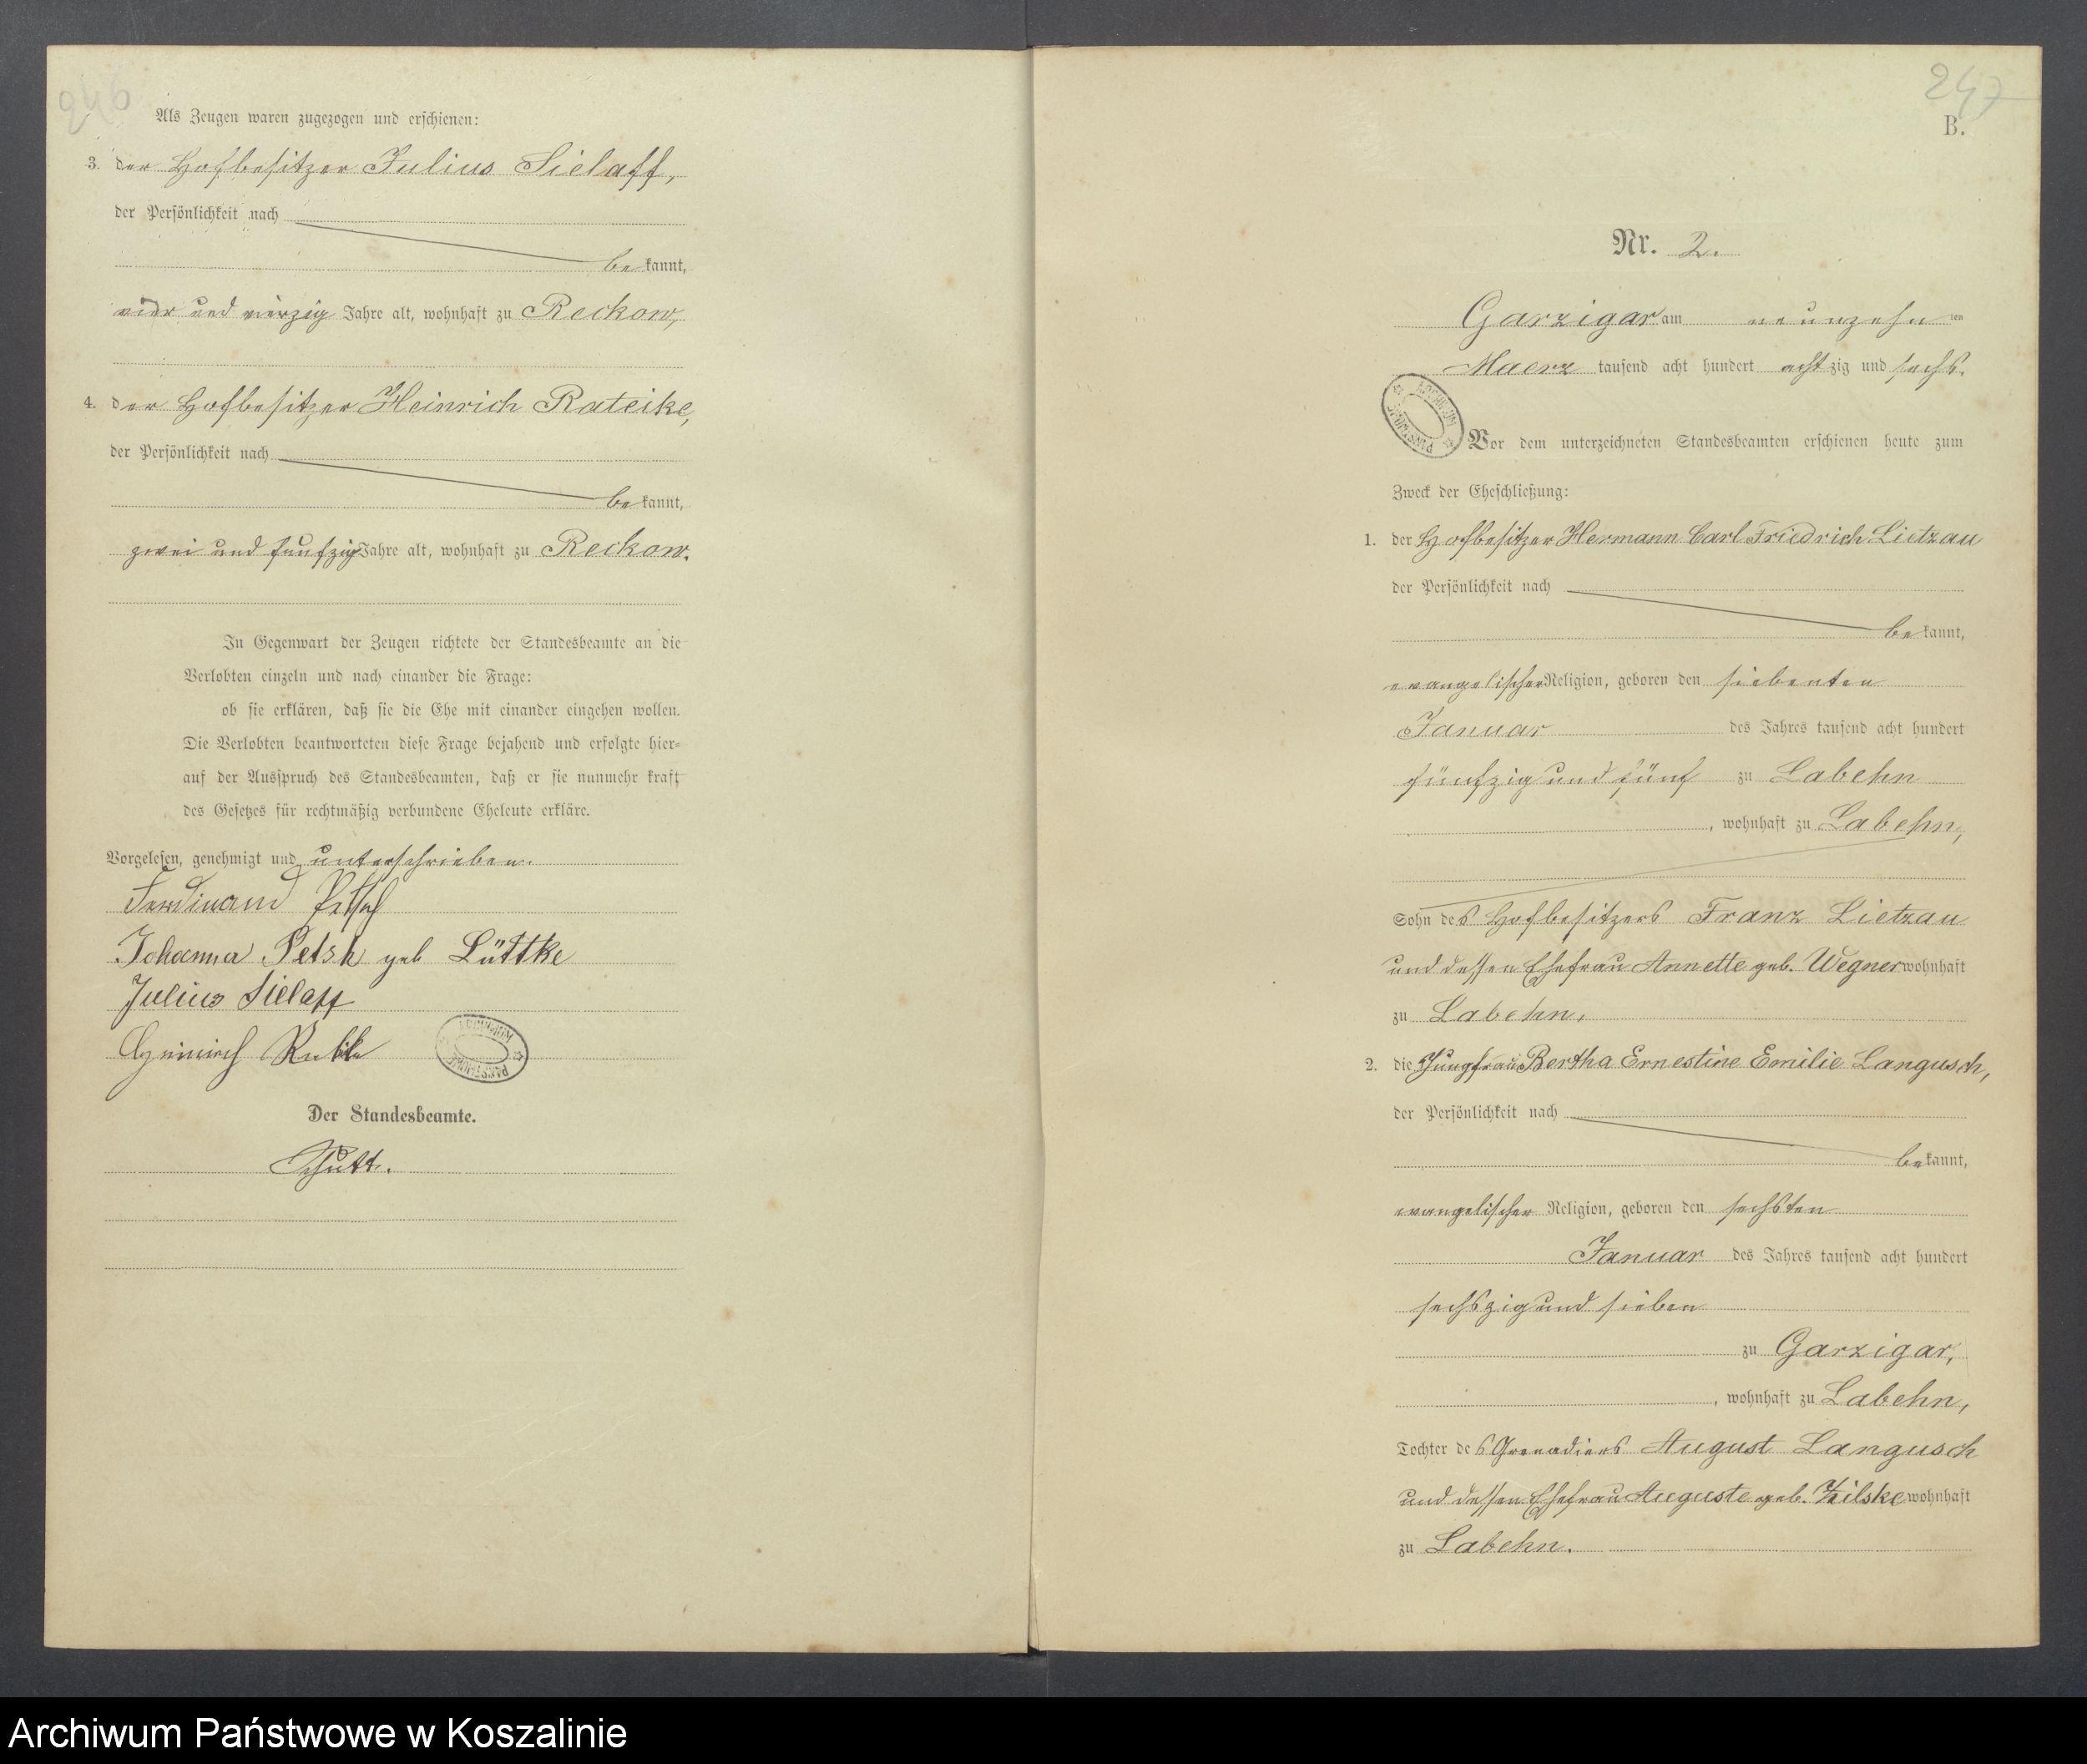 246
Als Zeugen waren zugezogen und erschienen:
3. der Hofbesitzer Julius Sielaff,
der Persönlichkeit nach
bekannt,
vier und vierzig Jahre alt, wohnhaft zu Reckow,
4. der Hofbesitzer Heinrich Rateike,
der Persönlichkeit nach
bekannt,
zwei und funfzig Jahre alt, wohnhaft zu Reckow.
In Gegenwart der Zeugen richtete der Standesbeamte an die
Verlobten einzeln und nach einander die Frage:
ob sie erklären, daß sie die Ehe mit einander eingehen wollen.
Die Verlobten beantworteten diese Frage bejahend und erfolgte hier-
auf der Ausspruch des Standesbeamten, daß er sie nunmehr kraft
des Gesetzes für rechtmäßig verbundene Eheleute erkläre.
Vorgelesen, genehmigt und unterschrieben.
Ferdinand Petsch
Johanna Petsh geb Lüttke
Julius Sielaff
Der Standesbeamte.
247
B.
Nr. 2.
Garzigar am neunzehn ten
Maerz tausend acht hundert achtzig und sechs.
Vor dem unterzeichneten Standesbeamten erschienen heute zum
Zweck der Eheschließung:
1. der Hofbesitzer Hermann Carl Friedrich Lietzau
der Persönlichkeit nach
bekannt,
evangelischer Religion, geboren den siebenten
Januar des Jahres tausend acht hundert
fünfzig und fünf zu Labehn
, wohnhaft zu Labehn,
Sohn des Hofbesitzers Franz Lietzau
und dessen Ehefrau Annette geb. Wegner wohnhaft
zu Labehn,
2. die Jungfrau Bertha Ernestine Emilie Langusch,
der Persönlichkeit nach
bekannt,
evangelischer Religion, geboren den sechsten
Januar des Jahres tausend acht hundert
sechszig und sieben
zu Garzigar,
, wohnhaft zu Labehn,
Tochter des Grenadiers August Langusch
und dessen Ehefrau Auguste geb. Zilske wohnhaft
zu Labehn.
Archiwum Państwowe w Koszalinie